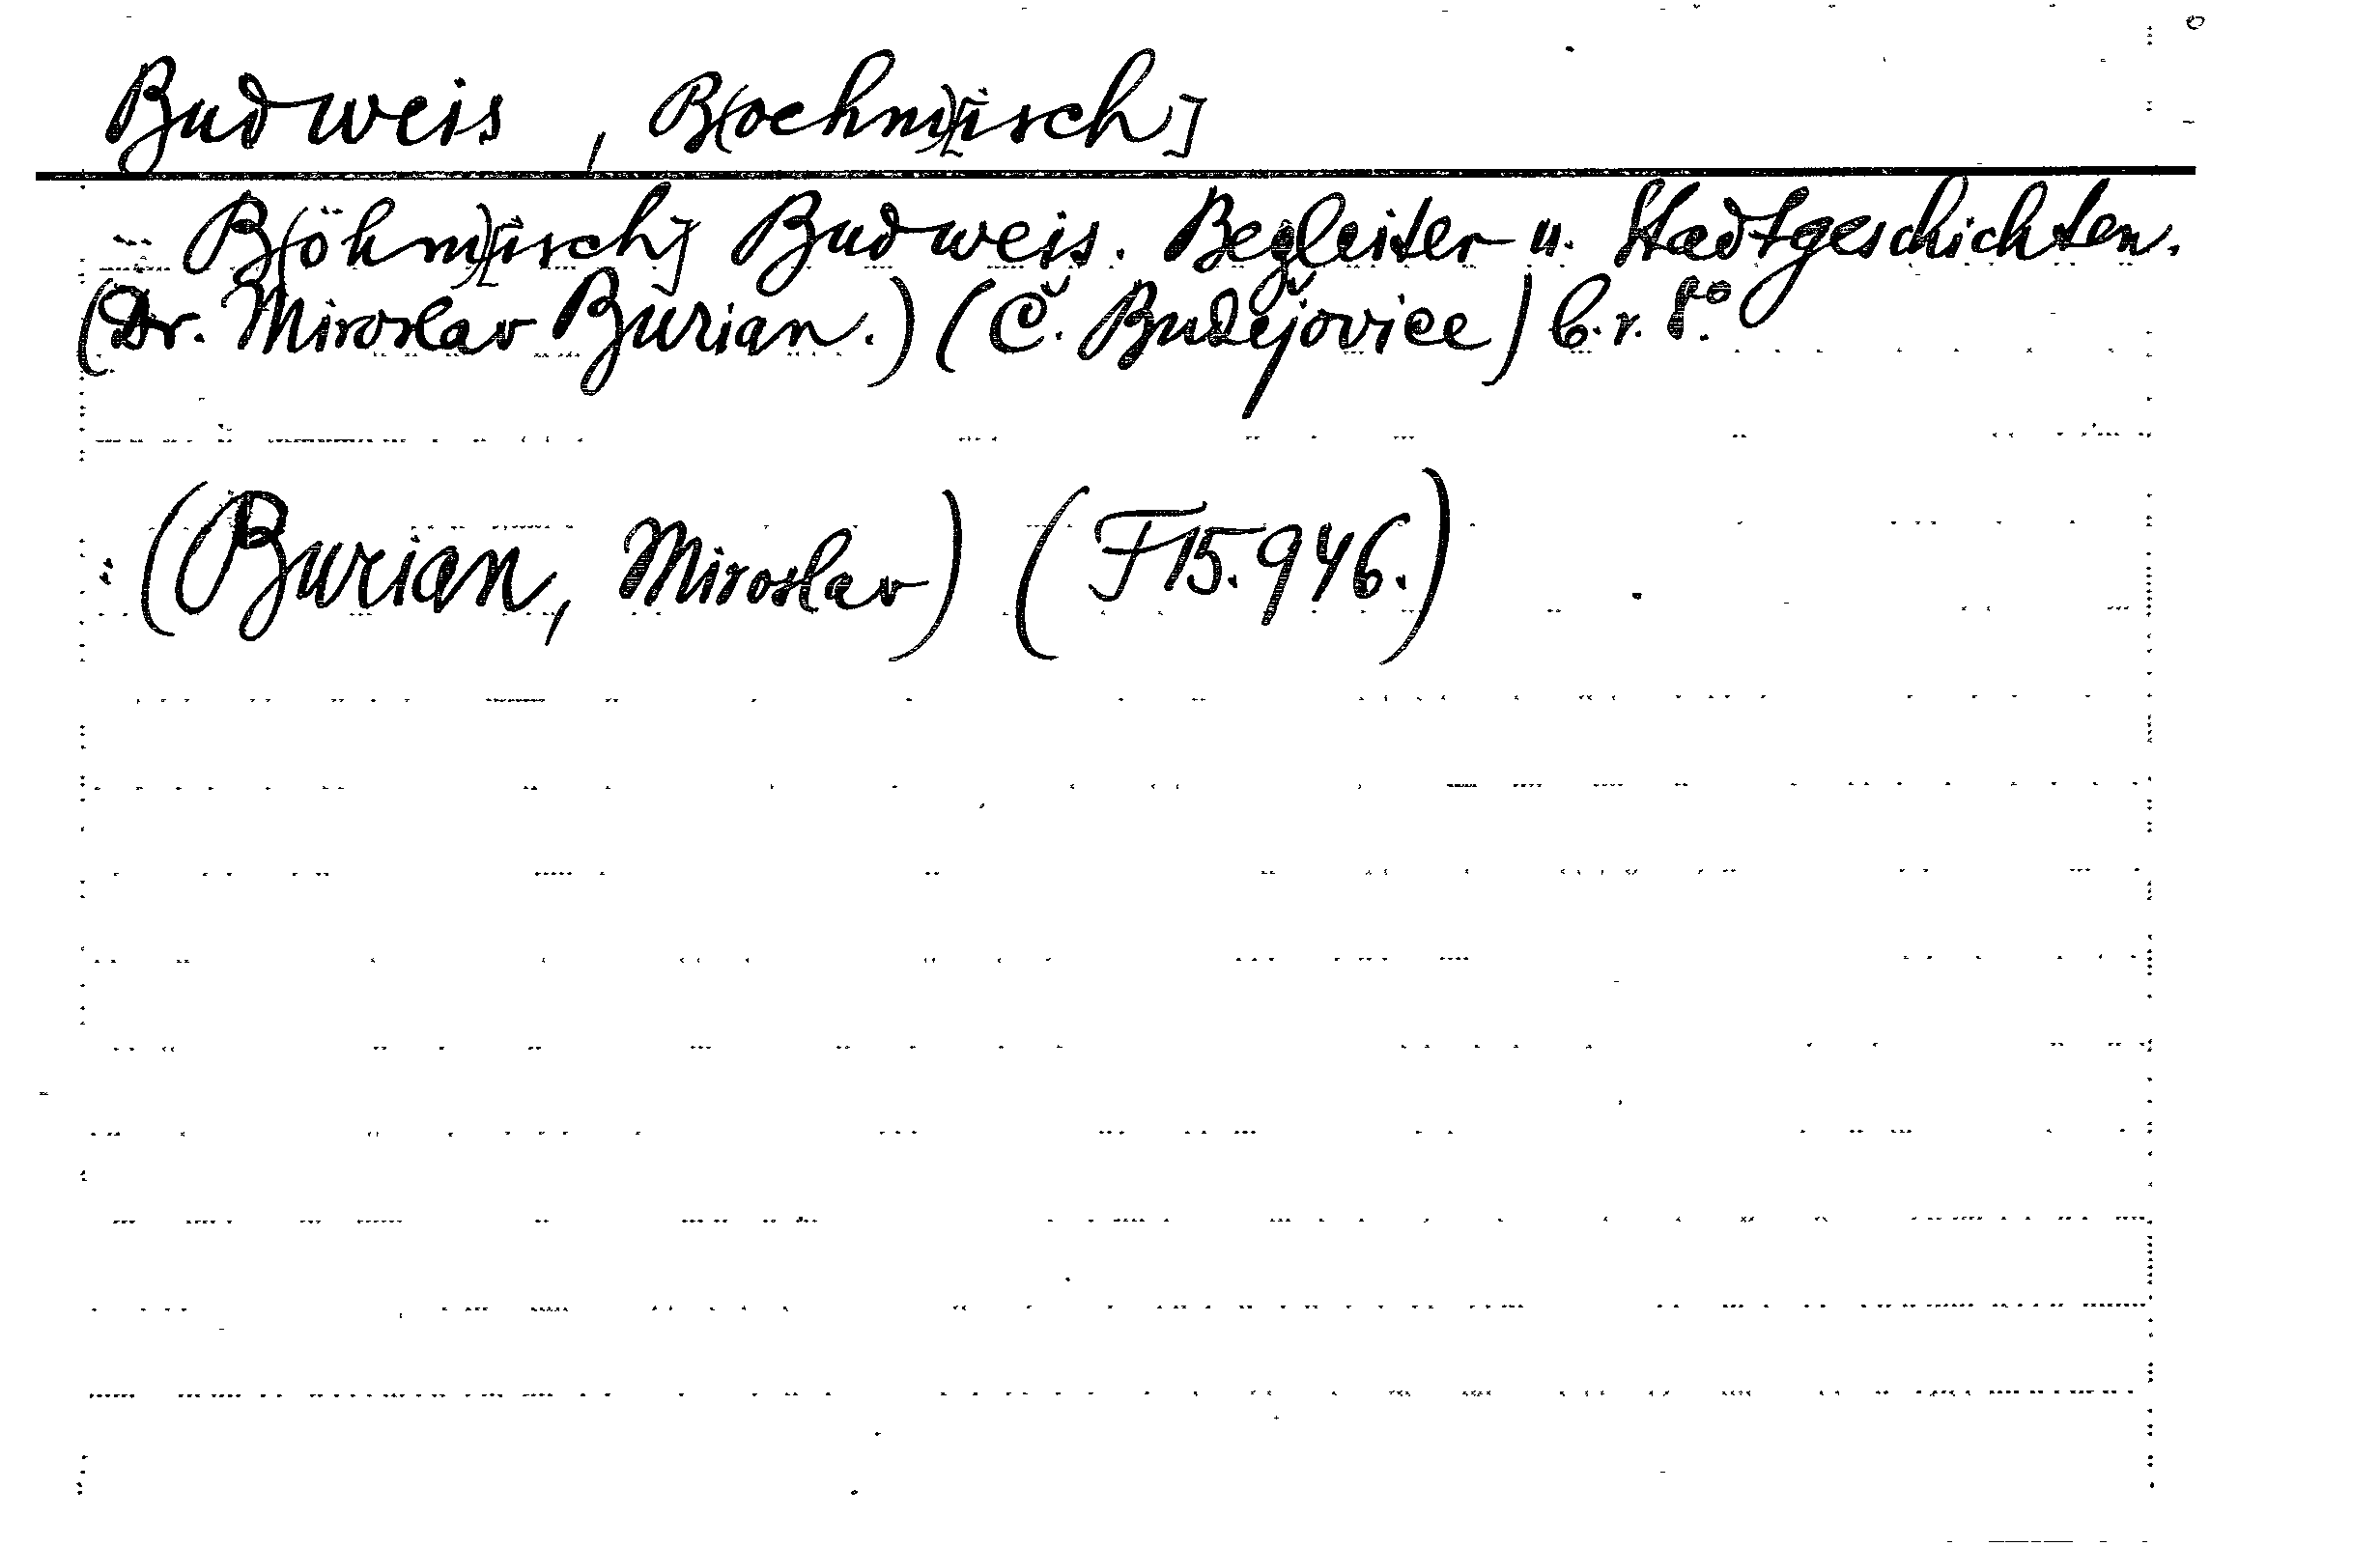 Budweis, B(oehm)[isch]
B(öhm)[isch] Budweis. Begleiter u. Stadtgeschichten.
(Dr. Miroslav Burian.) (Č. Budějovice) b.r. 8.o
(Burian, Miroslav) (F 15.946.)